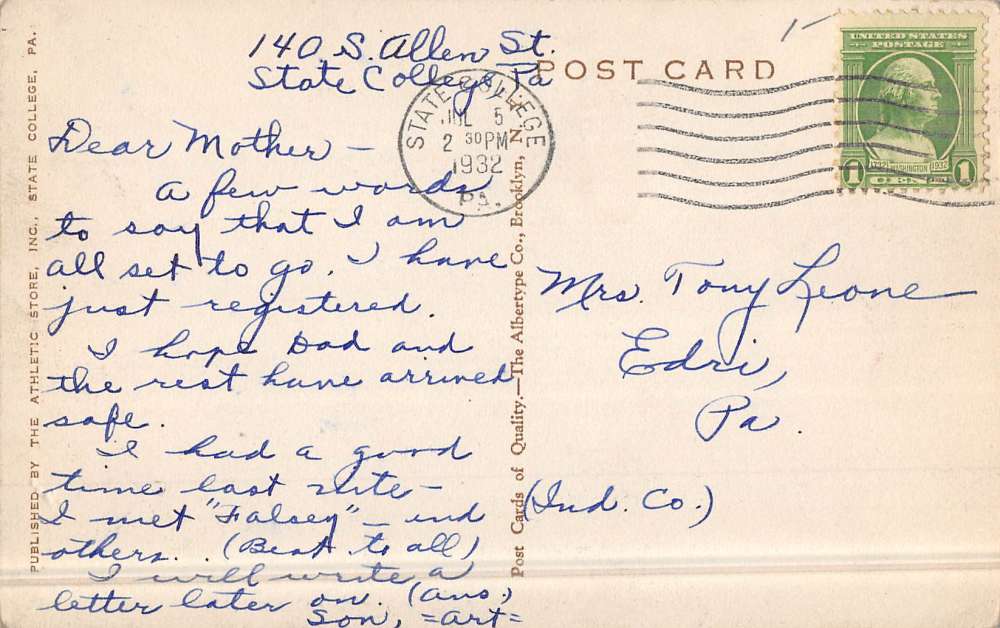 140 S. Allen St.
State College, Pa
Dear Mother —
A few words
to say that I am
all set to go. I have
just registered.
I hope Dad and
the rest have arrived
safe.
I had a good
time last nite —
I met "Falsey" — and
others. (Best to all)
I will write a
letter later on. (Ans.)
Son, =Art=
POST CARD
STATE COLLEGE
JUL 5
2 30 PM
1932
PA.
UNITED STATES
POSTAGE
1732 WASHINGTON 1932
1 CENT 1
Mrs. Tony Leone
Edri,
Pa.
(Ind. Co.)
PUBLISHED BY THE ATHLETIC STORE, INC., STATE COLLEGE, PA.
Post Cards of Quality.—The Albertype Co., Brooklyn, N.